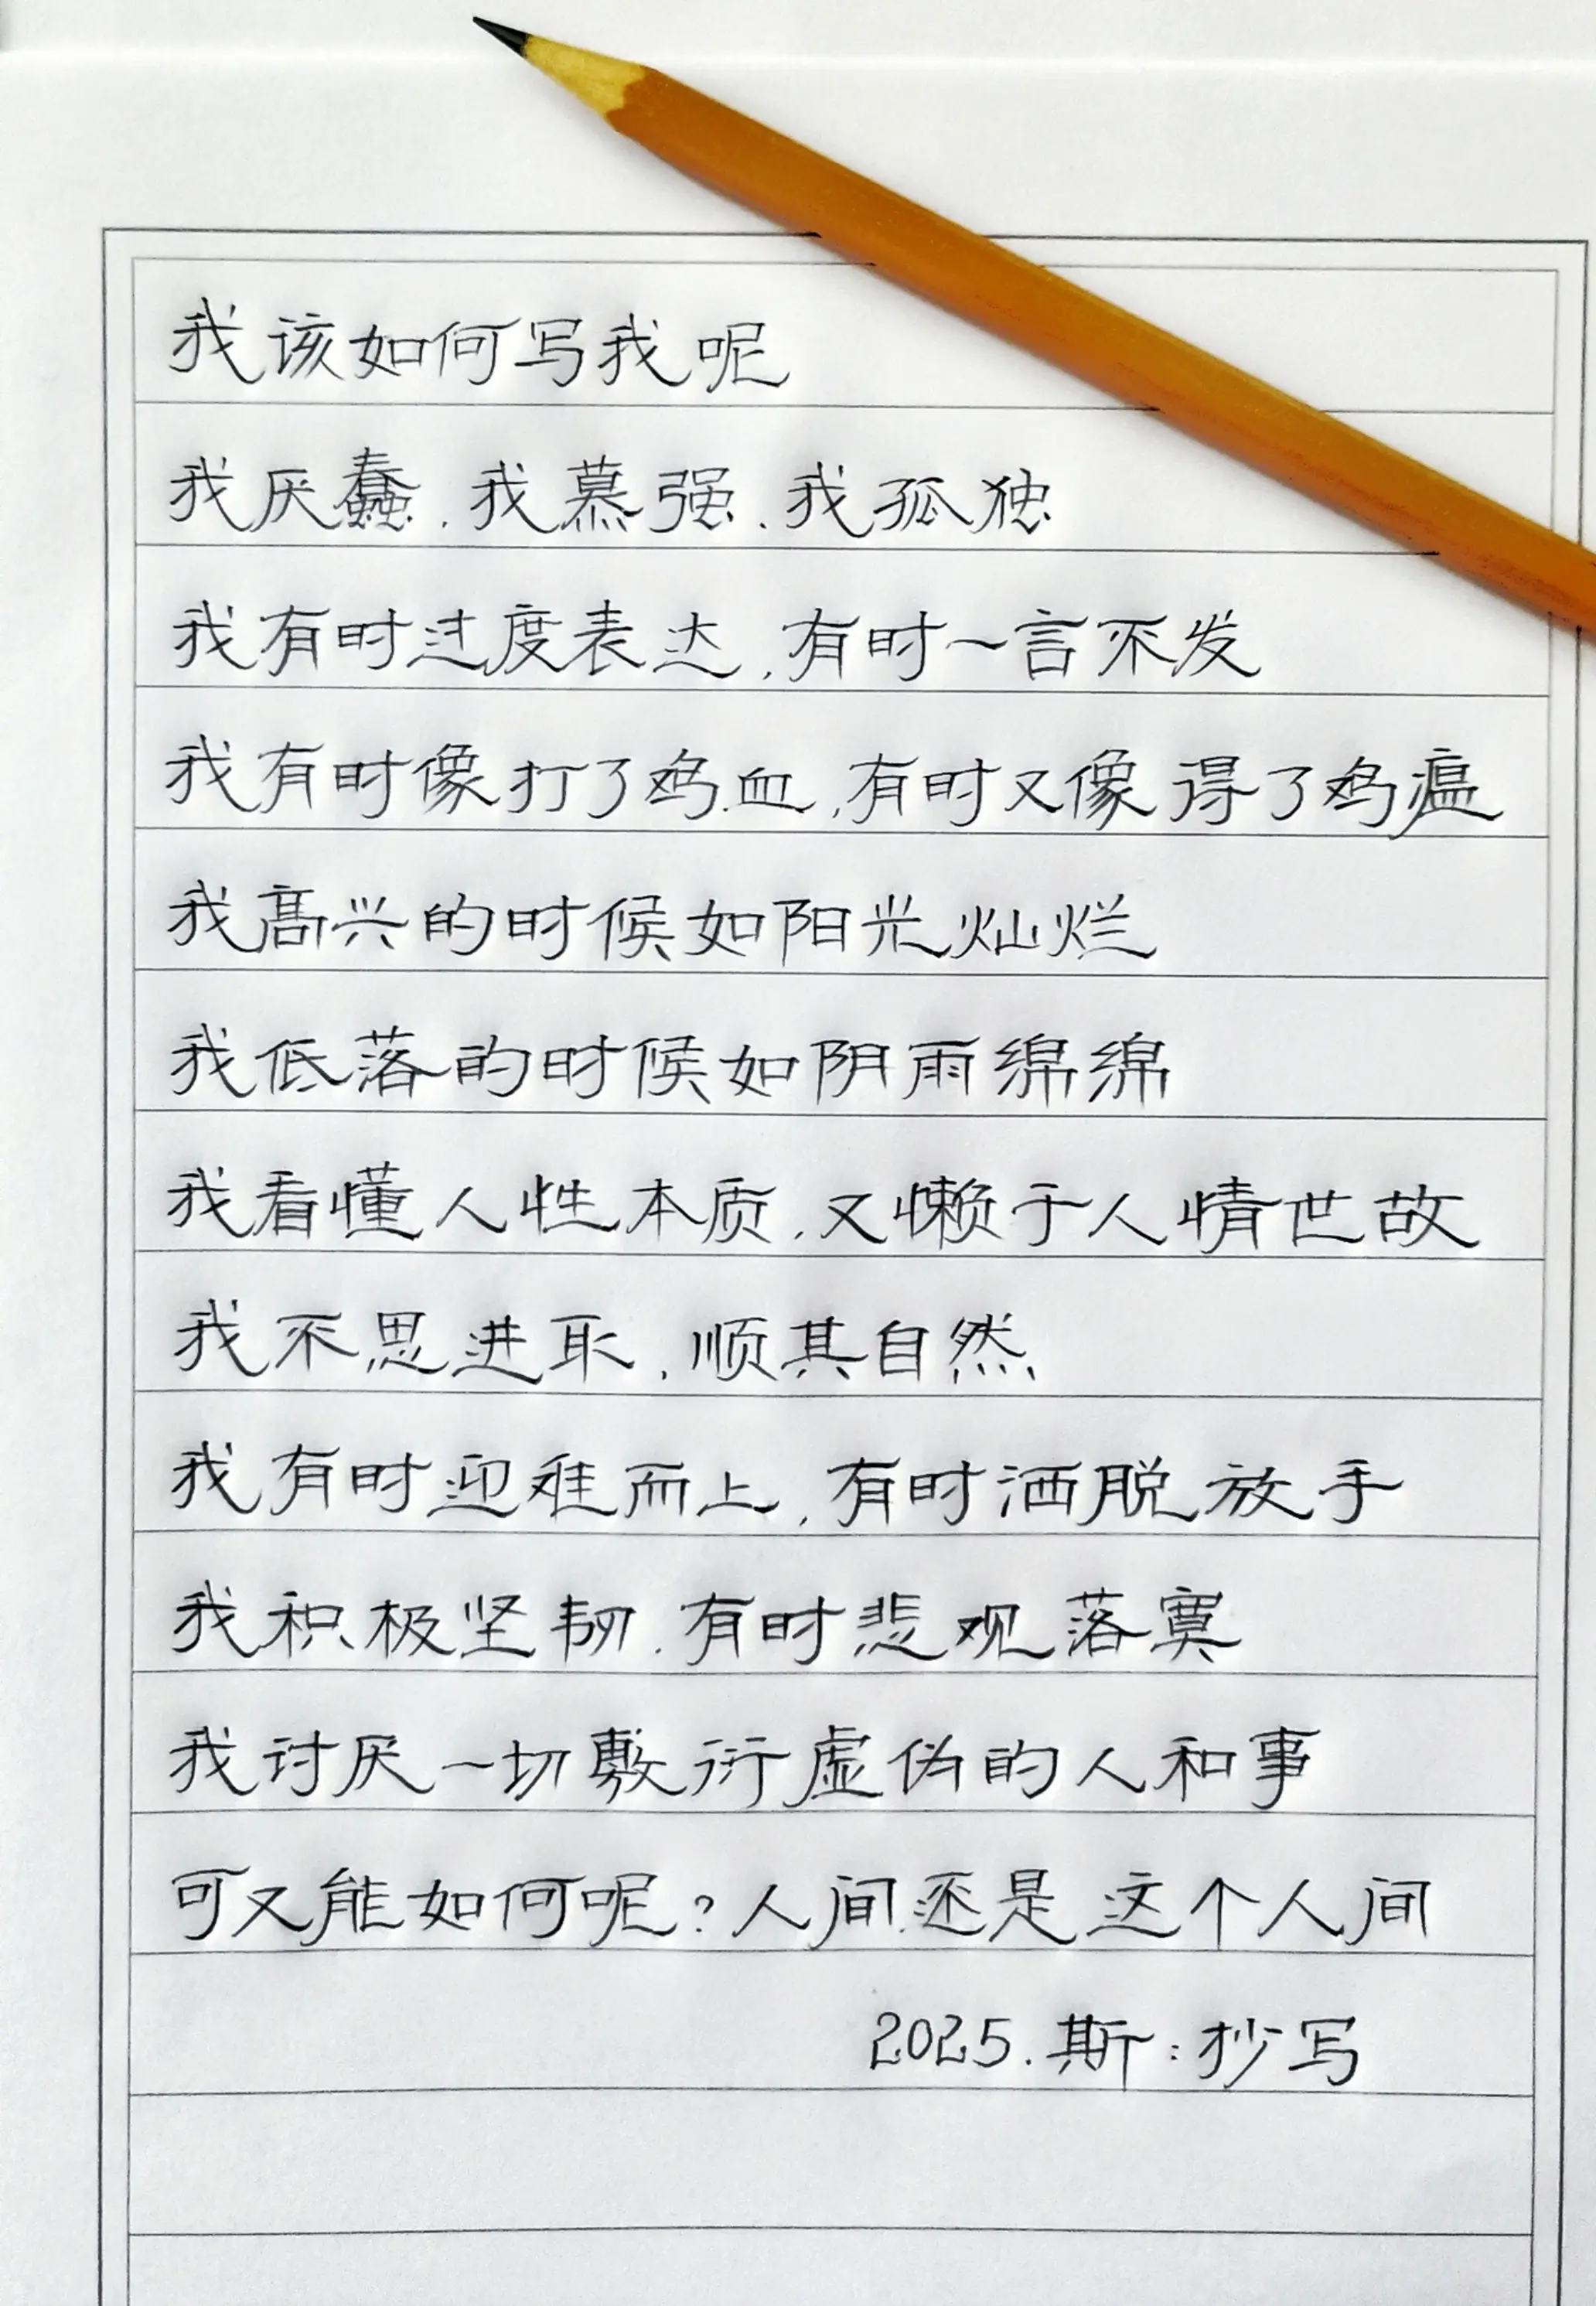 我该如何写我呢
我厌蠢.我慕强.我孤独
我有时过度表达,有时一言不发
我有时像打了鸡血,有时又像得了鸡瘟
我高兴的时候如阳光灿烂
我低落的时候如阴雨绵绵
我看懂人性本质.又懒于人情世故
我不思进取.顺其自然
我有时迎难而上,有时洒脱放手
我积极坚韧.有时悲观落寞
我讨厌一切敷衍虚伪的人和事
可又能如何呢?人间还是这个人间
2025.斯:抄写